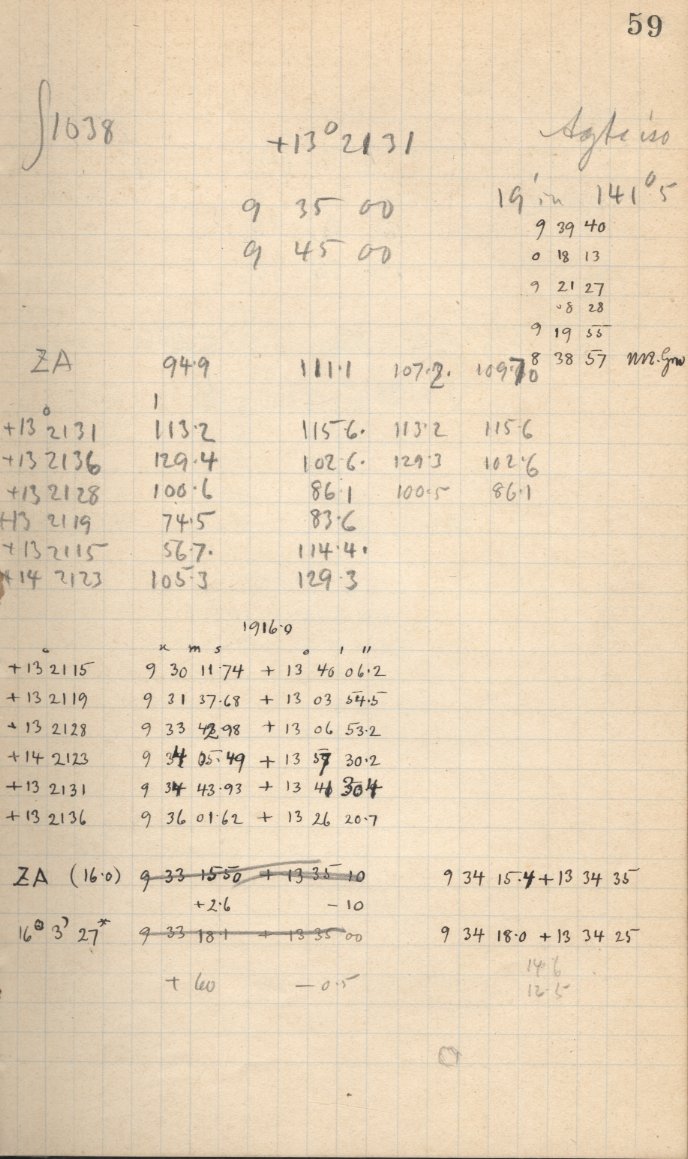 59
∫1038 +13° 2131
19' in 141°5
9 35 00
9 45 00
9 39 40
0 18 13
9 21 27
08 28
9 19 55
8 38 57
ZA 94.9 111.1 107.2. 109.
1
+13° 2131 113.2 115.6. 113.2 115.6
+13 2136 129.4 102.6. 129.3 102.6
+13 2128 100.6 86.1 100.5 86.1
+13 2119 74.5 83.6
+13 2115 56.7. 114.4.
+14 2123 105.3 129.3
1916.0
° h m s ° ' "
+13 2115 9 30 11.74 + 13 40 06.2
+13 2119 9 31 37.68 + 13 03 54.5
+13 2128 9 33 42.98 + 13 06 53.2
+14 2123 9 34 05.49 + 13 57 30.2
+13 2131 9 34 43.93 + 13 41 30.4
+13 2136 9 36 01.62 + 13 26 20.7
ZA (16.0) 9 33 15.50 + 13 35 10 9 34 15.4 +13 34 35
+2.6 -10
16 3 27 9 33 18.1 + 13 35 00 9 34 18.0 +13 34 25
14.6
+ 60 - 0.5 12.5